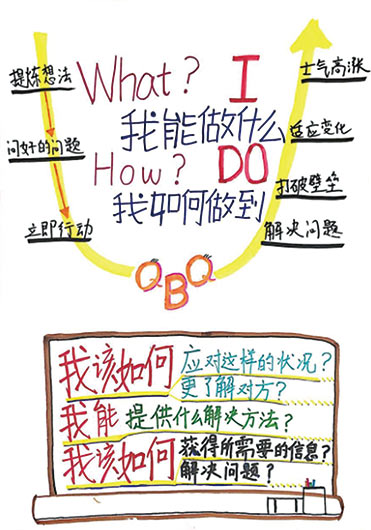 提炼想法
问好的问题
立即行动
What? I
我能做什么
How? DO
我如何做到
QBQ
士气高涨
适应变化
打破壁垒
解决问题
我该如何 应对这样的状况?
更了解对方?
我能 提供什么解决方法?
我该如何 获得所需要的信息?
解决问题?